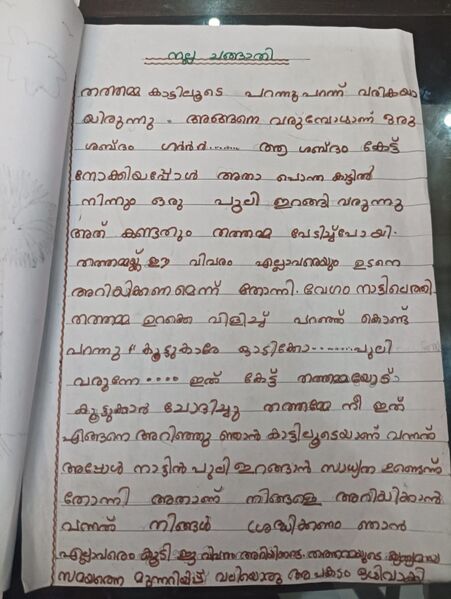 നല്ല ചങ്ങാതി
തത്തമ്മ കാട്ടിലൂടെ പറന്നു പറന്ന് വരികയാ
യിരുന്നു. അങ്ങനെ വരുമ്പോളാണ് ഒരു
ശബ്ദം ഗർർർ....... ആ ശബ്ദം കേട്ട്
നോക്കിയപ്പോൾ അതാ പൊന്ത കാട്ടിൽ
നിന്നും ഒരു പുലി ഇറങ്ങി വരുന്നു
അത് കണ്ടതും തത്തമ്മ പേടിച്ച്പോയി.
തത്തമ്മയ്ക്ക് ഈ വിവരം എല്ലാവരെയും ഉടനെ
അറിയിക്കണമെന്ന് തോന്നി. വേഗം നാട്ടിലെത്തി
തത്തമ്മ ഉറക്കെ വിളിച്ച് പറഞ്ഞ് കൊണ്ട്
പറന്നു "കൂട്ടുകാരേ ഓടിക്കോ........പുലി
വരുന്നേ.... ഇത് കേട്ട് തത്തമ്മയോട്
കൂട്ടുക്കാർ ചോദിച്ചു തത്തമ്മേ നീ ഇത്
എങ്ങനെ അറിഞ്ഞു ഞാൻ കാട്ടിലൂടെയാണ് വന്നത്
അപ്പോൾ നാട്ടിൽ പുലി ഇറങ്ങാൻ സാധ്യത ഉണ്ടെന്ന്
തോന്നി അതാണ് നിങ്ങളെ അറിയിക്കാൻ
വന്നത് നിങ്ങൾ ശ്രദ്ധിക്കണം ഞാൻ
എല്ലാവരെം കൂടി ഈ വിവരം അറിയിക്കട്ടെ. തത്തമ്മയുടെ കൃത്യമായ
സമയത്തെ മുന്നറിയിപ്പ് വലിയൊരു അപകടം ഒഴിവാക്കി